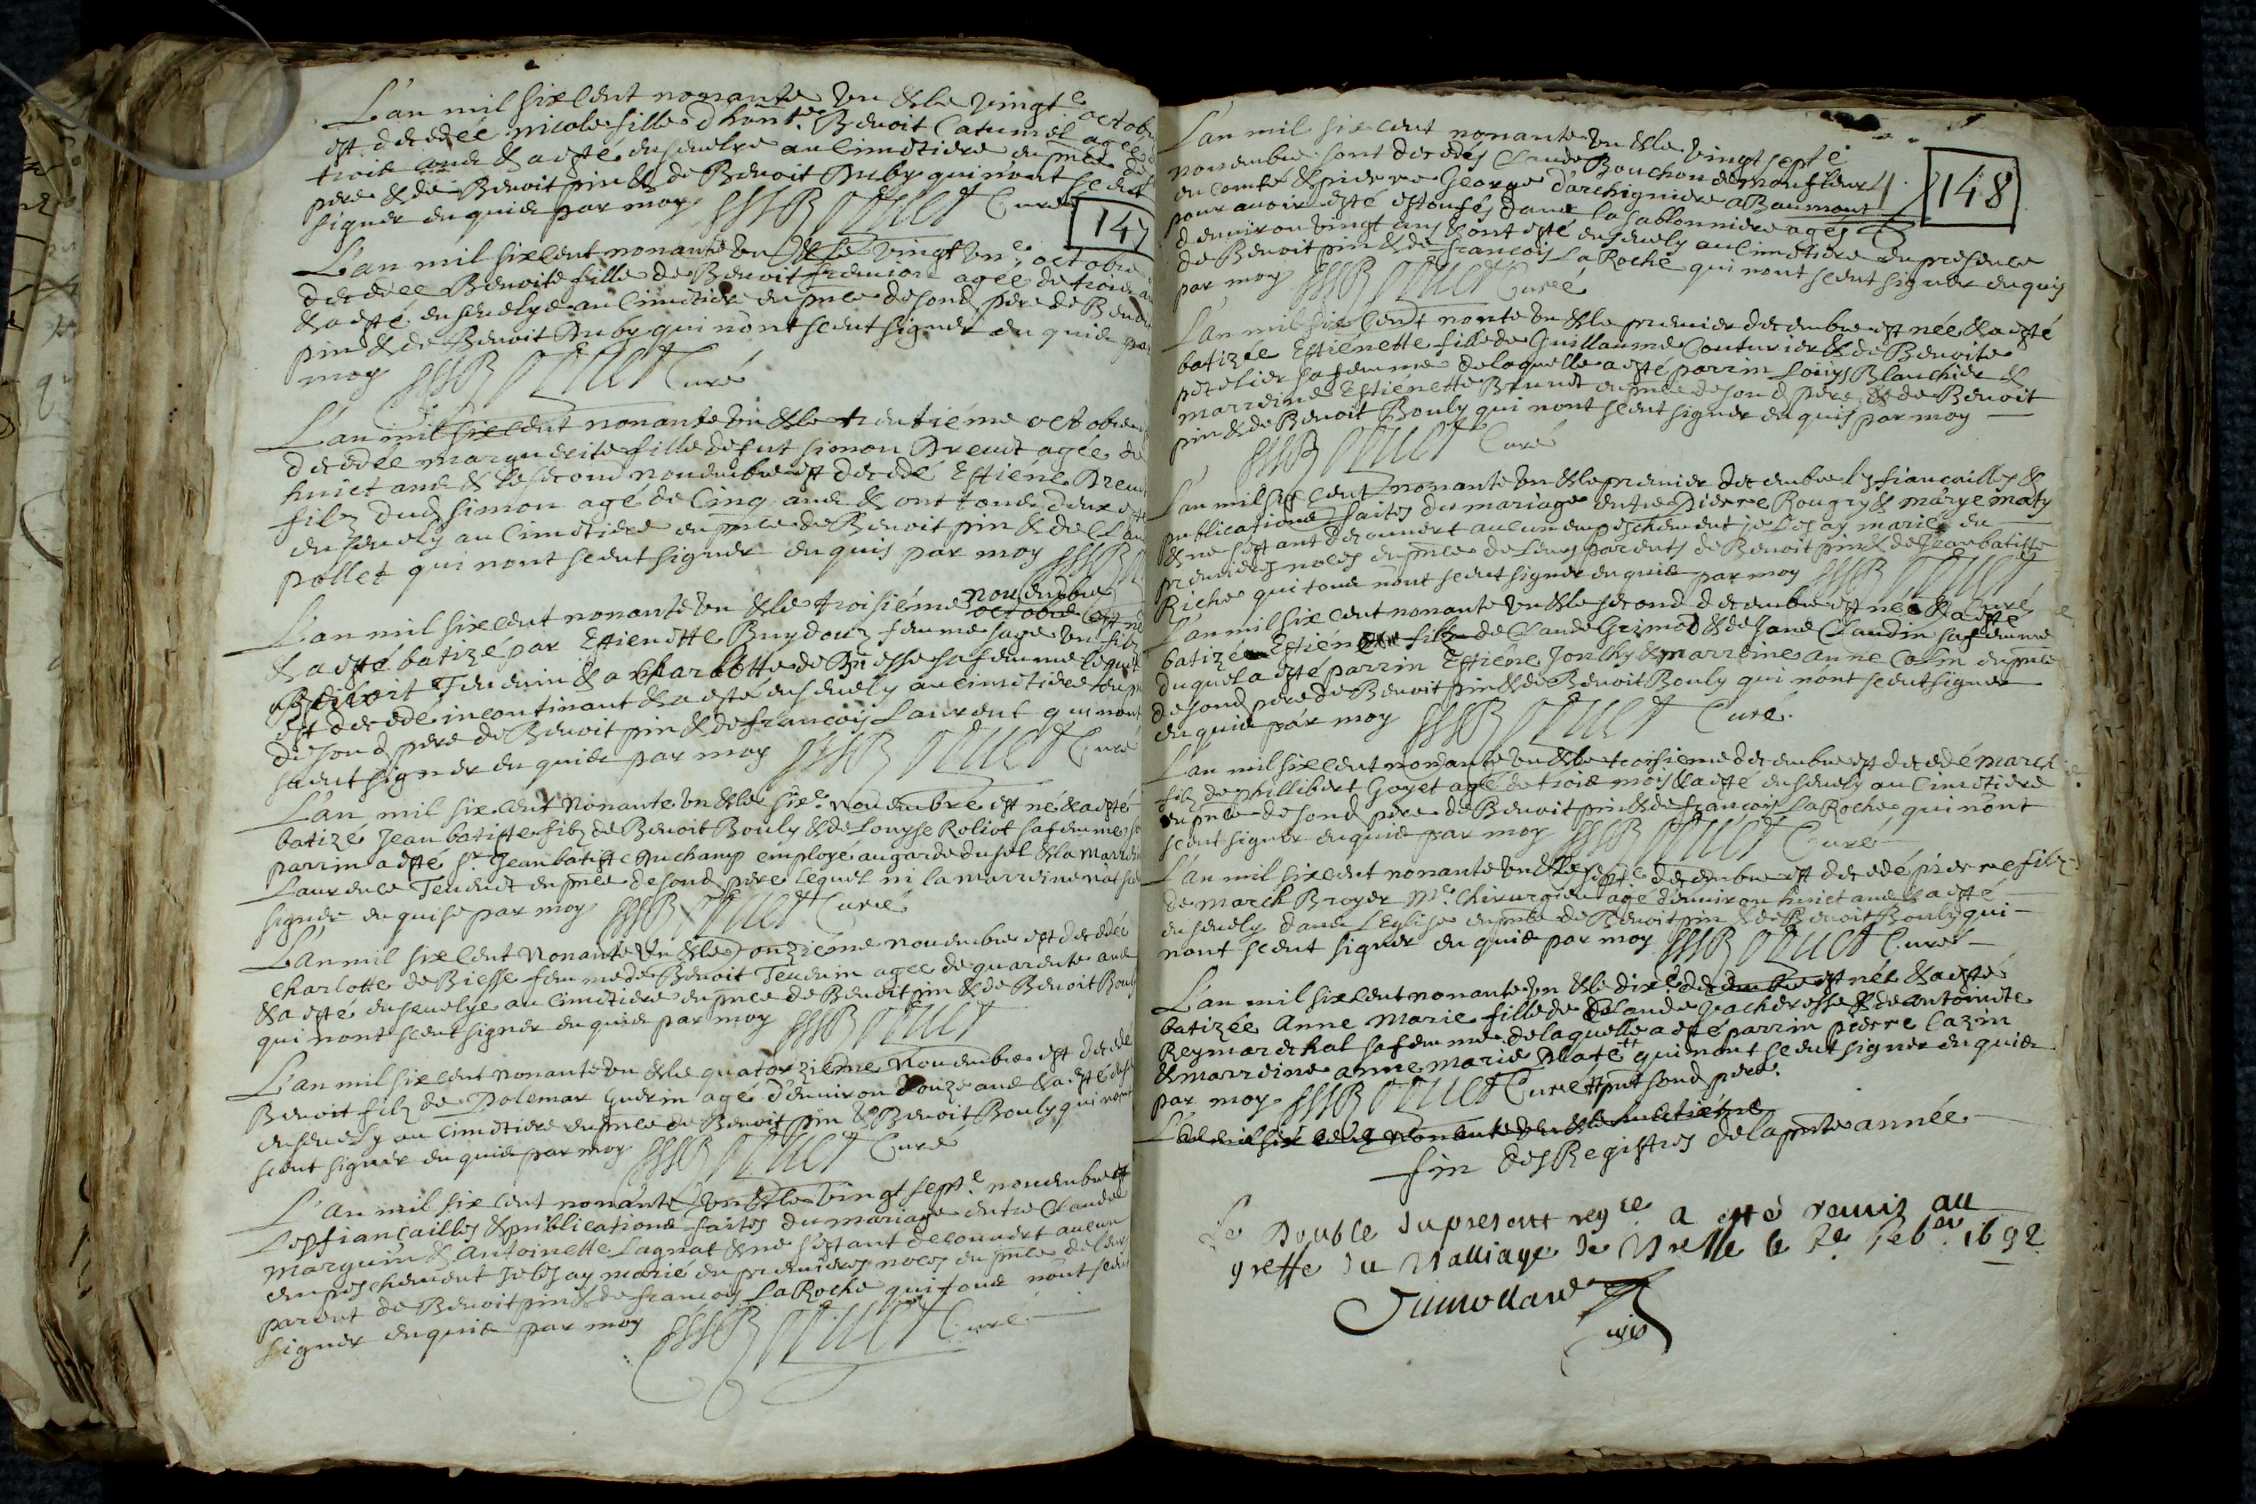 L'an mil six cent nonante un & le vingt.e octob
est decedée nicole fille d'hon.te Benoit Catumel agée
trois ans & a esté ensevelye au cimetiere en pnce de
pere & de Benoit pin & de Benoit Duby qui n'ont sceut
signer enquis par moy Curé
147
L'an mil six cent nonante un & le vingt un.e octobre
decedée Benoite fille de Benoit agée de trois
& a esté ensevelye au cimetiere en pnce de sond pere de Ben
pin & de Benoit Duby qui n'ont sceut signer enquis par
moy Curé
L'an mil six cent nonante un & le trentiéme octobre
decedée marguerite fille defut simon Brevet agée de
huict ans & le second novembre est decedé Estiéne Brev
filz dud simon agé de cinq ans & ont tous deux esté
ensevely au cimetiere en pnce de Benoit pin & de Clau
pollet qui n'ont sceut signer enquis par moy
L'an mil six cent nonante un & le troisiéme novembre octobre est né
& a esté batizé par Estienette Buydouz femme sage un filz
a Benoit Tevenin & a Charlotte de Biesse sa femme lequel
est decedé incontinant & a esté ensevely au cimetiere en pn
de sond pere de Benoit pin & de francois Laurent qui n'ont
sceut signer enquis par moy Curé
L'an mil six cent nonante un & le six.e novembre est né & a esté
batizé Jean batiste filz de Benoit Bouly & de Louyse Roliot sa femme
parrin a esté sr Jean batiste Duchamp employé au garde du sel & la marrein
Laurence Tevenet en pnce de sond pere lequel ni la marreine n'at
signer enquise par moy Curé
L'an mil six cent nonante un & le onziéme novembre est decedée
Charlotte de Biesse femme de Benoit Tevenin agée de quarente ans
& a esté ensevelye au cimetiere en pnce de Benoit pin & de Benoit Bouly
qui n'ont sceut signer enquis par moy
L'an mil six cent nonante un & le quatorziéme novembre est decedé
Benoit filz de Dolemar Guerin agé d'environ douze ans & a esté
ensevely au cimetiere en pnce de Benoit pin & Benoit Bouly qui n'ont
sceut signer enquis par moy Curé
L'an mil six cent nonante un & le vingt sept.e novembre
Les fiancailles & publications faites du mariage entre Claude
marguin & Antoinette Lagnat & ne s'estant decouvert aucun
empeschement Je les ay marié en premieres noces en pnce de leurs
parent de Benoit pin & de francois LaRoche qui tous n'ont sceut
signer enquis par moy Curé
L'an mil six cent nonante un & le vingt sept.e
novembre sont decedés Claude Bouchon de
en comté & pierre George d'archigniere a Baumont
pour avoir esté estoufés dans la sablonniere agés
d'environ vingt ans & ont esté ensevely au cimetiere en presence
de Benoit pin & de francois LaRoche qui n'ont sceut signer enquis
par moy Curé
148
L'an mil six cent nonte un & le premier decembre est née & a esté
batizée Estiénette fille de Guillaume Couturier & de Benoite
petelier sa femme de laquelle a esté parrin Louys Blanchier &
marreine Estiénette Brunet en pnce de sond pere & de Benoit
pin & de Benoit Bouly qui n'ont sceut signer enquis par moy
Curé
L'an mil six cent nonante un & le premier decembre les fiancailles &
publications faites du mariage entre Pierre Rougry & marye maty
& ne s'estant decouvert aucun empeschement je les ay marié en
premieres noces en pnce de leurs parents de Benoit pin & de Jean batiste
Riche qui tous n'ont sceut signer enquis par moy Curé
L'an mil six cent nonante un & le second decembre est né & a esté
batizé Estiéne filz de Claude Grimod & de Jane Claudin sa femme
duquel a esté parrin Estiéne & marreine anne en pnce
de sond pere de Benoit pin & de Benoit Bouly qui n'ont sceut signer
enquis par moy Curé.
L'an mil six cent nonante un & le troisieme decembre est decedé march
filz de phillibert Goyet agé de trois mois & a esté ensevely au cimetiere
en pnce de sond pere de Benoit pin & de francois LaRoche qui n'ont
sceut signer enquis par moy Curé
L'an mil six cent nonante un & le sept.e decembre est decedé pierre filz
de march Broyer M.e Chirurgien agé d'environ huict ans & a esté
ensevely dans L'Eglise en pnce de Benoit pin & de Benoit Bouly qui
n'ont sceut signer enquis par moy Curé
L'an mil six cent nonante un & le dix.e decembre est née & a esté
batizée Anne Marie fille de Claude Vacheresse & de antoinette
Reymarechal sa femme de laquelle a esté parrin pierre Cazin
& marreine anne marie qui n'ont sceut signer enquis
par moy Curé # pnt sond pere.
L'an mil six cent nonante un & le huictiéme
fin des Registres de la pnte année
Le Double du present reg.re a esté remis au
greffe du Balliage de Bresse le 7e feb.er 1692